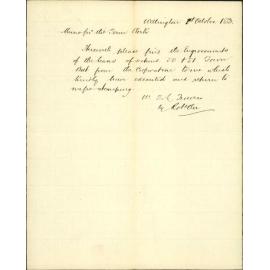 Wellington 1st October 1883
Memo for the Town Clerk
Herewith please find the Engrossments
of the leases of sections 50 & 51 Town
Belt from the Corporation to me which
kindly have executed and return to
me for stamping.